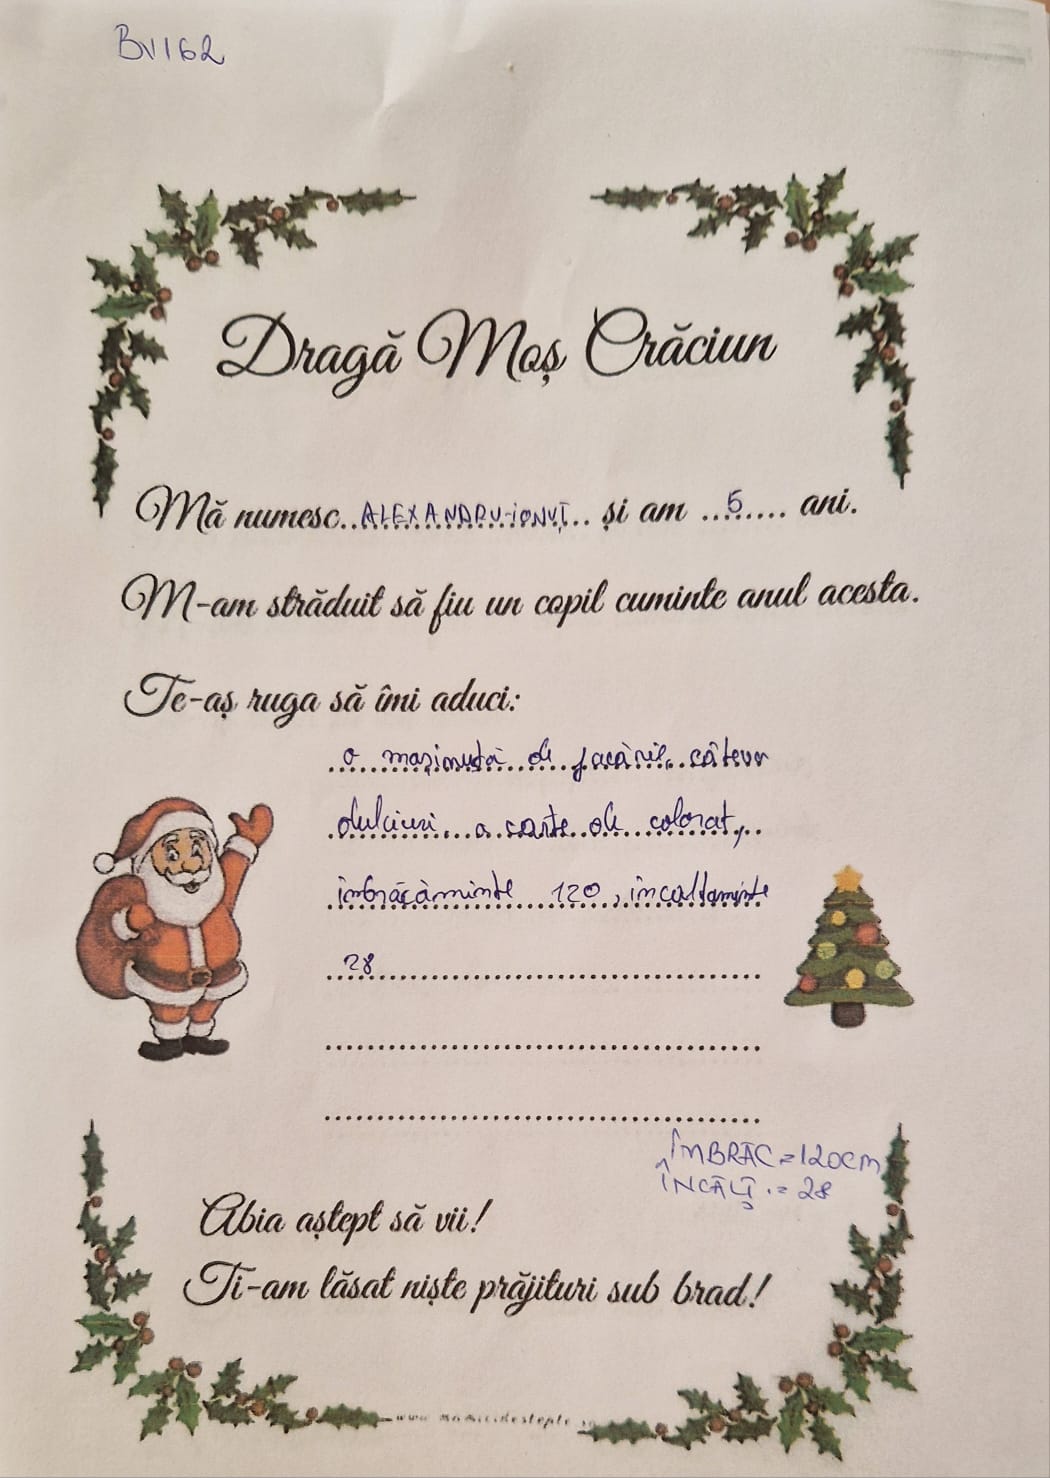 BV162
Dragă Moș Crăciun
Mă numesc..ALEXANDRU-IONUȚ.. și am ...5..... ani.
M-am străduit să fiu un copil cuminte anul acesta.
Te-aș ruga să îmi aduci:
o mașinuță de jucărie, câteva
dulciuri, o carte de colorat,
îmbrăcăminte 120, încaltaminte
28
ÎMBRĂC=120CM
ÎNCĂLȚ.=28
Abia aștept să vii!
Ti-am lăsat niște prăjituri sub brad!
www.mamicidestepte.ro